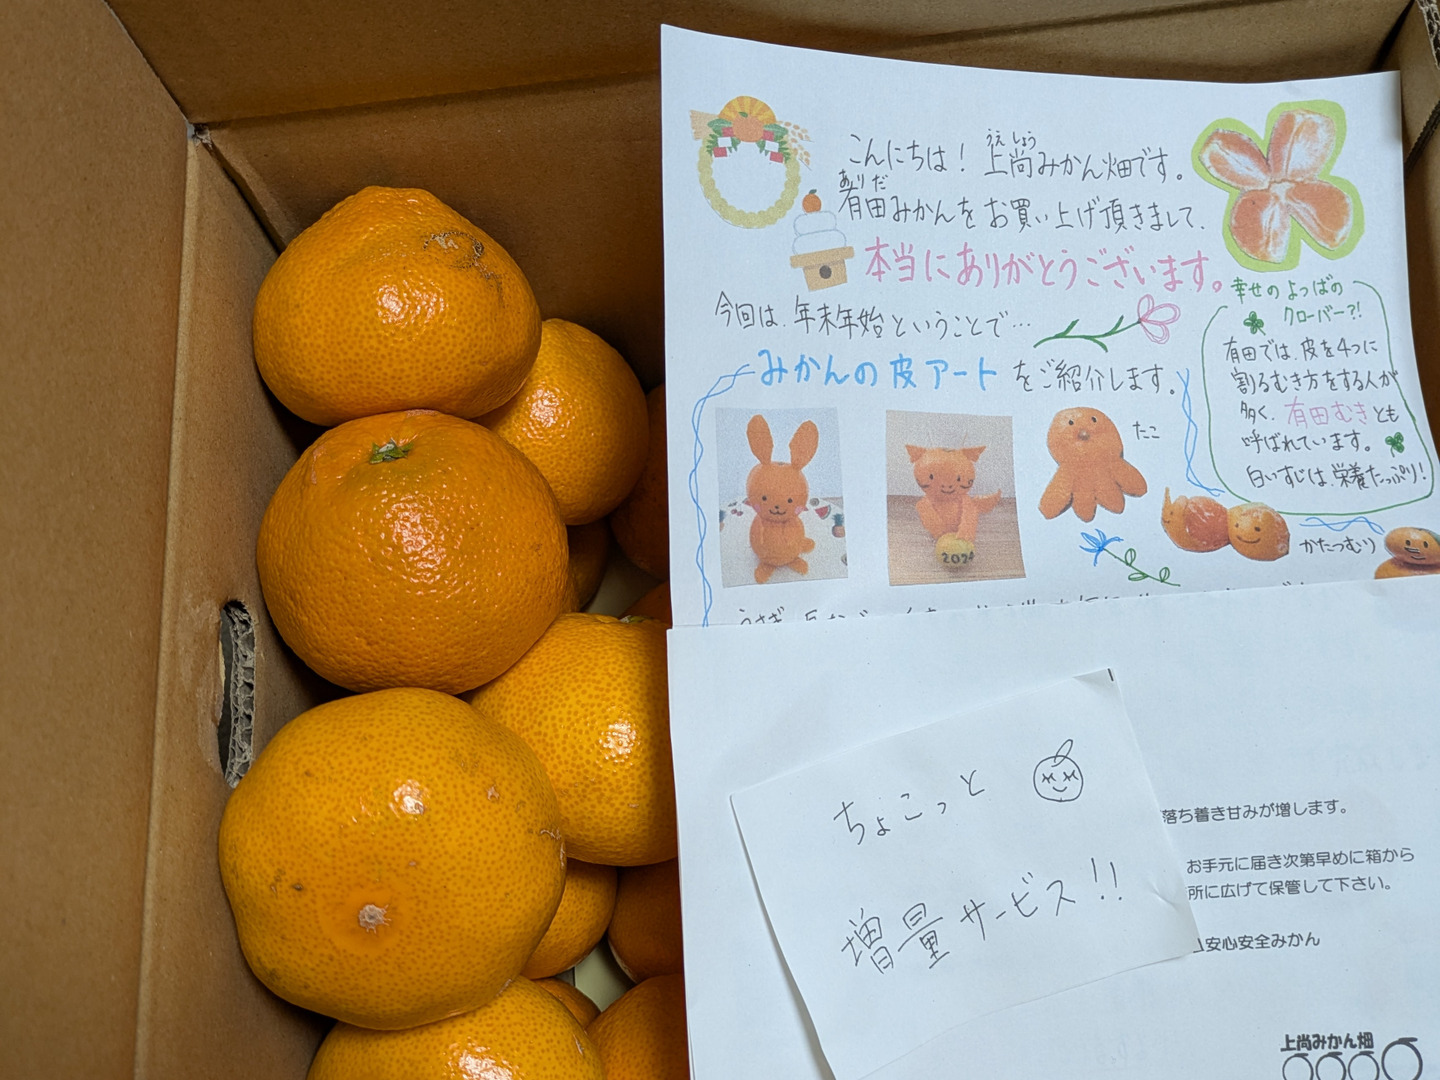 こんにちは！ 上尚みかん畑です。
うえ しょう
有田みかんをお買い上げ頂きまして、
ありだ
本当にありがとうございます。
今回は、年末年始ということで…
みかんの皮アートをご紹介します。
幸せのよつばの
クローバー?!
有田では、皮を4つに
割るむき方をする人が
多く、有田むきとも
呼ばれています。
白いすじは、栄養たっぷり！
たこ
2024
かたつむり
ちょこっと
増量サービス!!
落ち着き甘みが増します。
お手元に届き次第早めに箱から
所に広げて保管して下さい。
安心安全みかん
上尚みかん畑